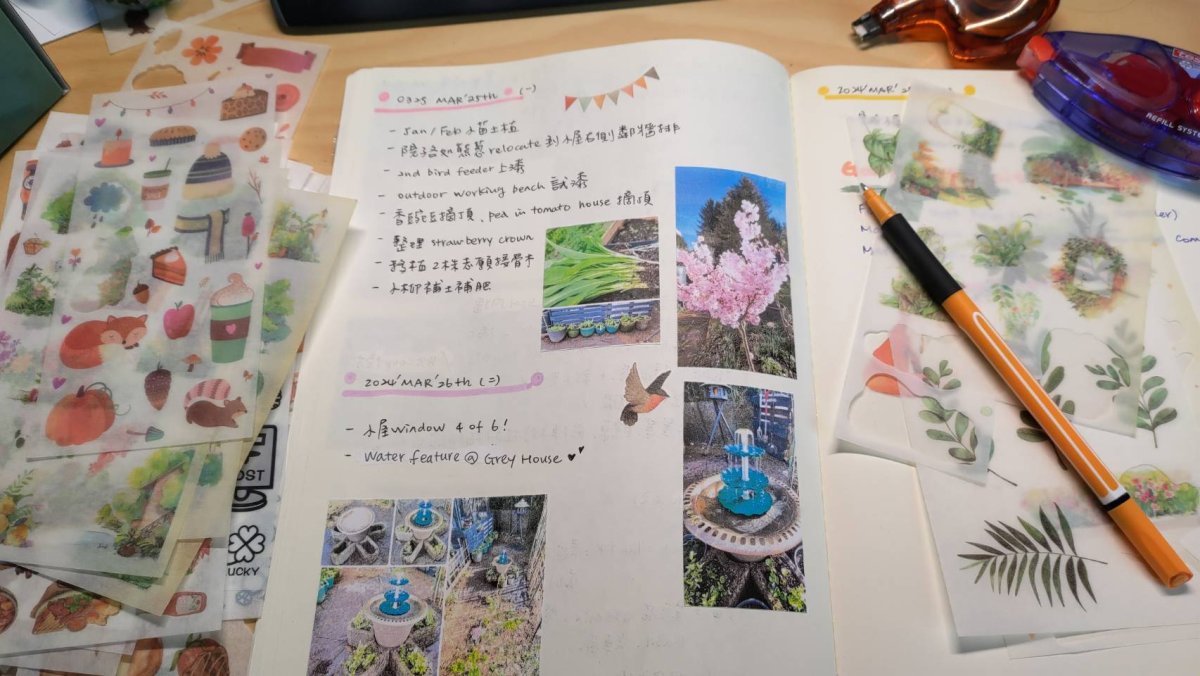 0325 MAR'25th (一)
- Jan / Feb 小苗土植
- 院子各如蔥蔥 relocate 到小屋右側鄰牆排
- 2nd bird feeder 上漆
- outdoor working bench 試漆
- 香豌豆摘頂、pea in tomato house 摘頂
- 整理 strawberry crown
- 移植 2株志願接骨木
- 小柳補土補肥
2024'MAR'26th (二)
- 小屋 window 4 of 6!
- Water feature @ Grey House
2024'MAR'2
REFILL SYSTE
OST
LUCKY